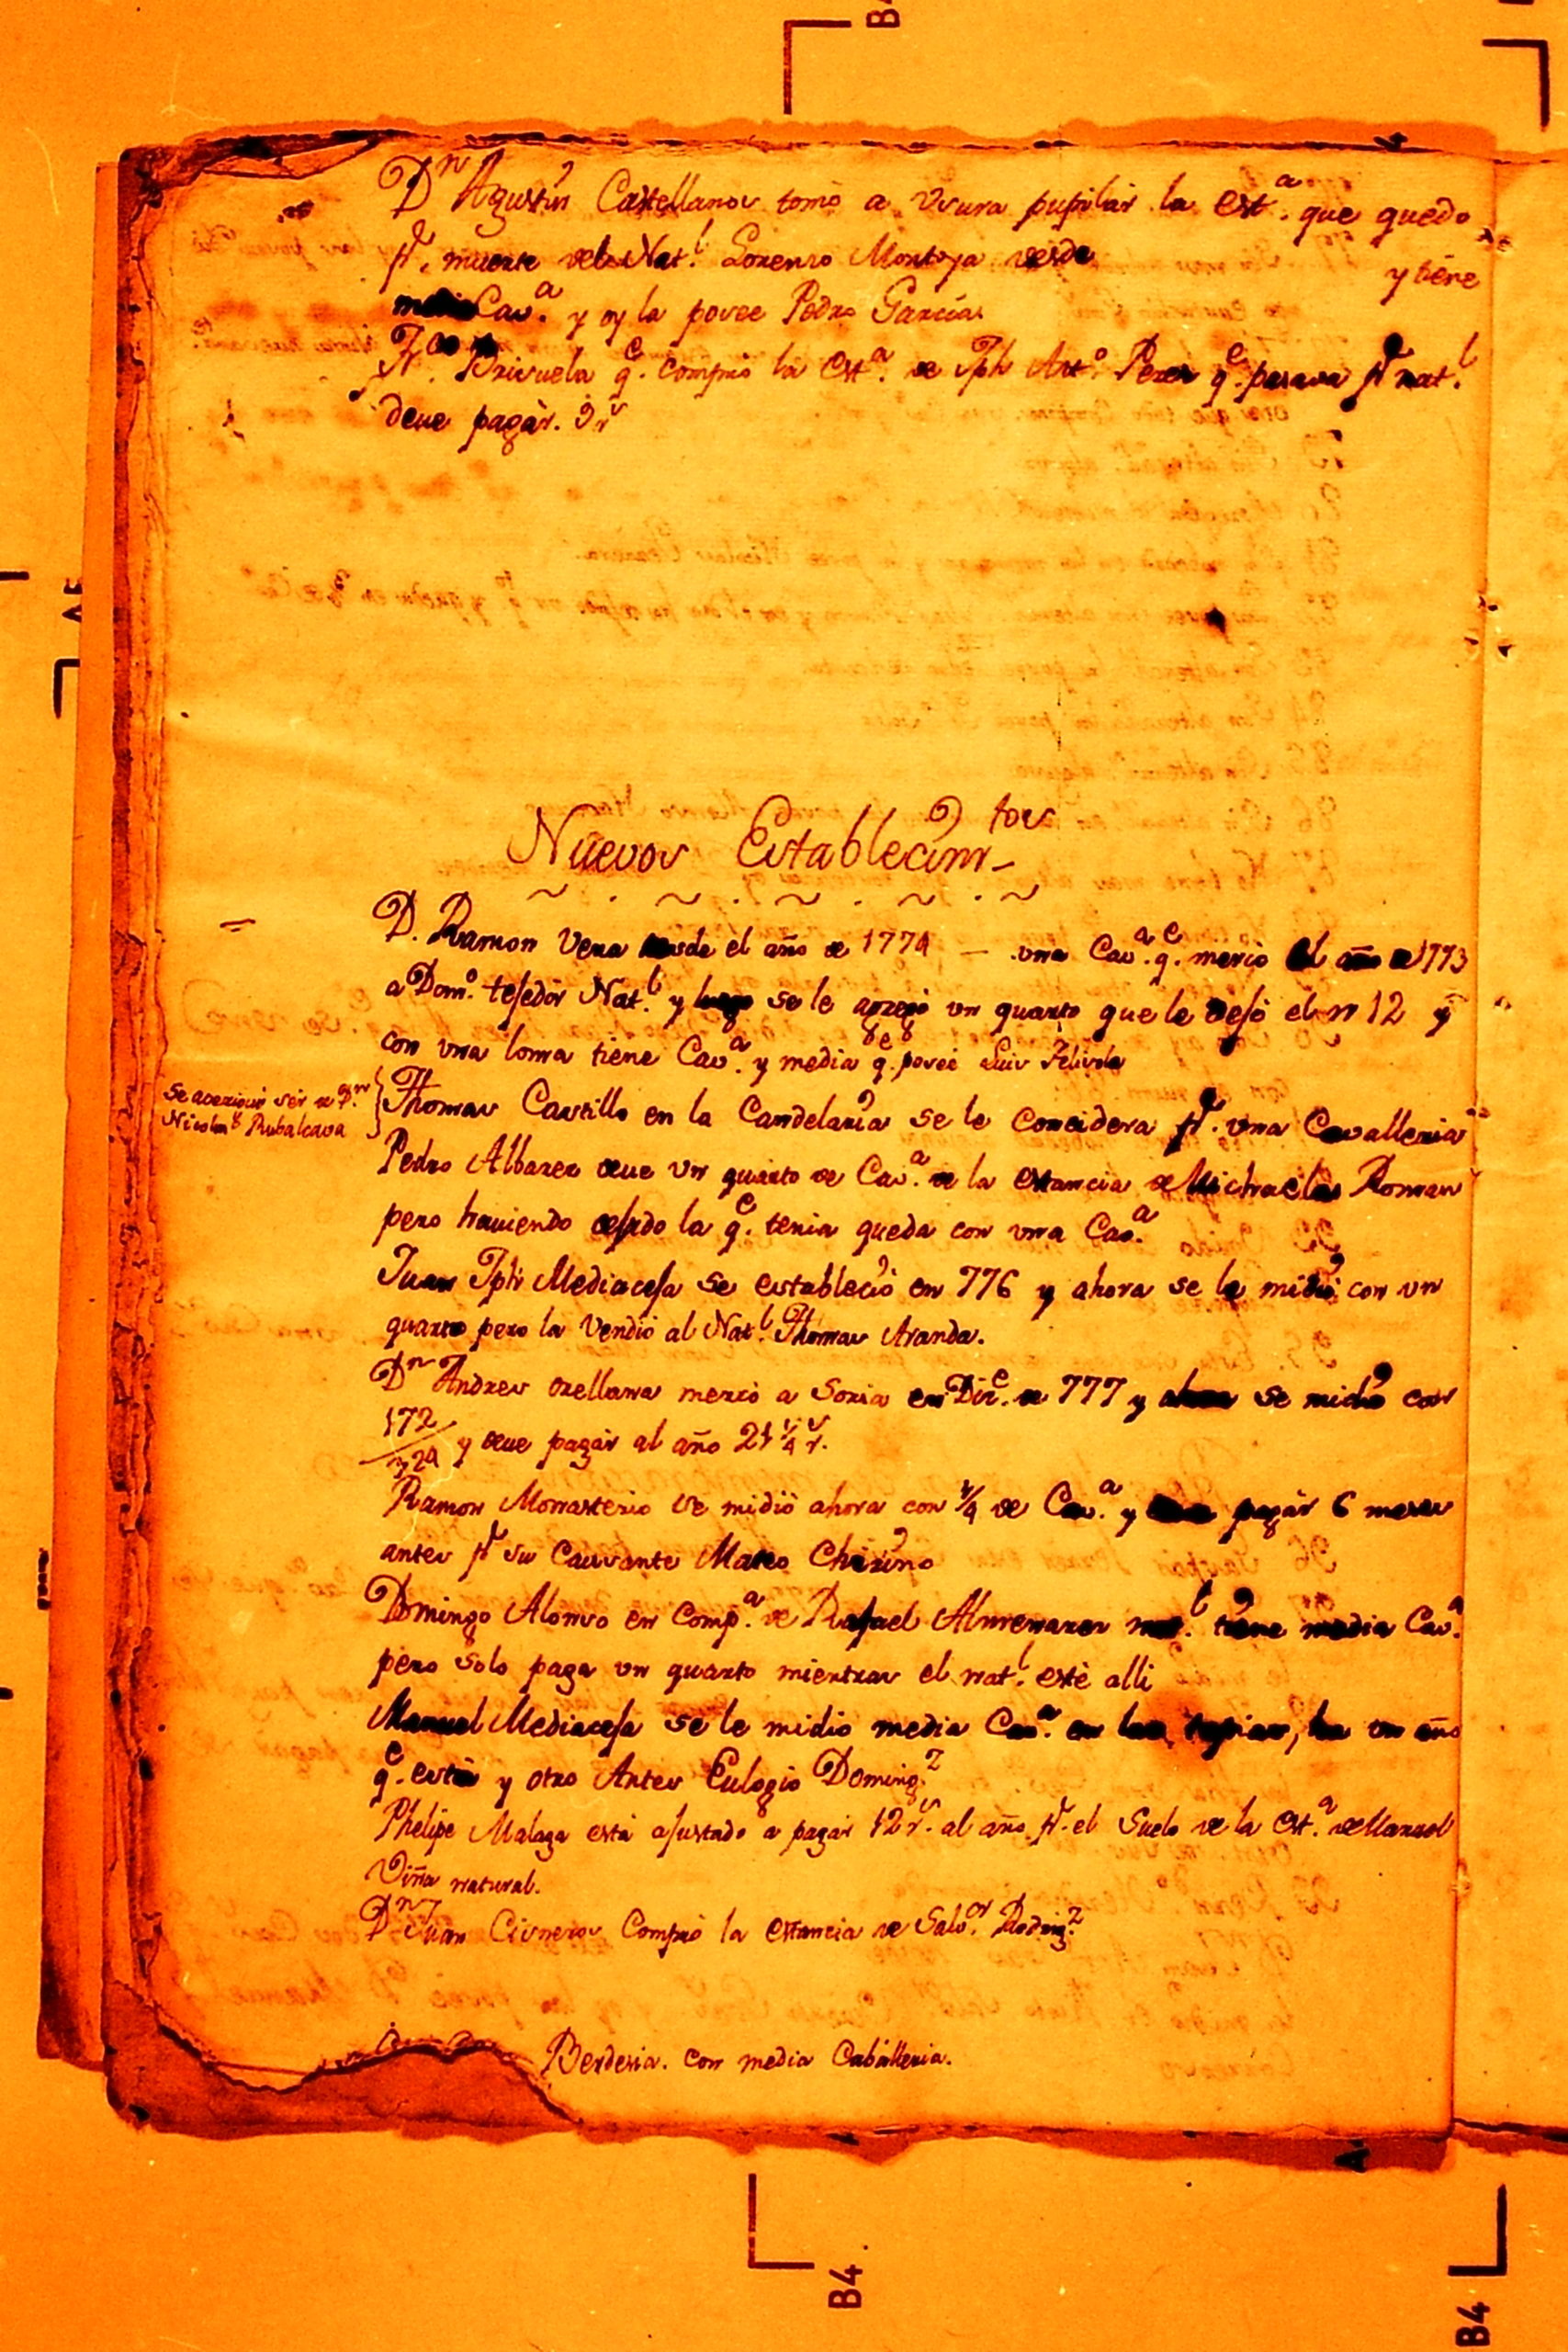 Dn Agustin Castellanos tomó a Usura pupilár la Esta. que quedo
pr. muerte del Natl. Lorenzo Montoya desde y tiene
media Cava. y oy la posee Pedro García
Brisuela qe. compró la Esta. de Jph Anto. Perez qe. pasava pr natl.
deve pagár. 9 rs
Nuevos Establecimtos
D. Ramon Vera desde el año de 1774 — una Cava. qe. mercó el año de 1773
a Domo. tejedór Natl. y luego se le agregó un quarto que le dejó el n 12 y
con una loma tiene Cava. y media qe. posee Luis Felisola
Se averiguó sér de Dn
Nicolas Rubalcava
Thomas Castillo en la Candelaria se le considera pr. una Cavalleria
Pedro Albarez deve un quarto de Cava. de la estancia de Michaela Roman
pero haviendo dejado la qe. tenia queda con una Cava.
Juan Jph Mediaceja se estableció en 776 y ahora se le midió con un
quarto pero la Vendió al Natl. Thomas Aranda.
Dn Andres Orellana mercó a Soria en Dize. de 777 y ahora se midió con
172/324 y deve pagár al año 21 1/4 rs.
Ramon Monasterio se midió ahora con 1/4 de Cava. y pagár 6 meses
antes pr su Causante Mateo Chirino
Domingo Alonso en Compa. de Rafael Almenares natl. tiene media Cava.
pero solo paga un quarto mientras el natl. esté alli
Manuel Mediaceja se le midio media Cava. en las tapias, ha un año
qe. está y otro Antes Eulogio Doming.z
Phelipe Malaga está ajustado a pagar 12 rs. al año pr. el Suelo de la Esta. de Manuel
Viña natural.
Dn Juan Cisneros Compró la estancia de Salvor. Rodrig.z
Berderia. con media Caballeria.
B4
B4
B4